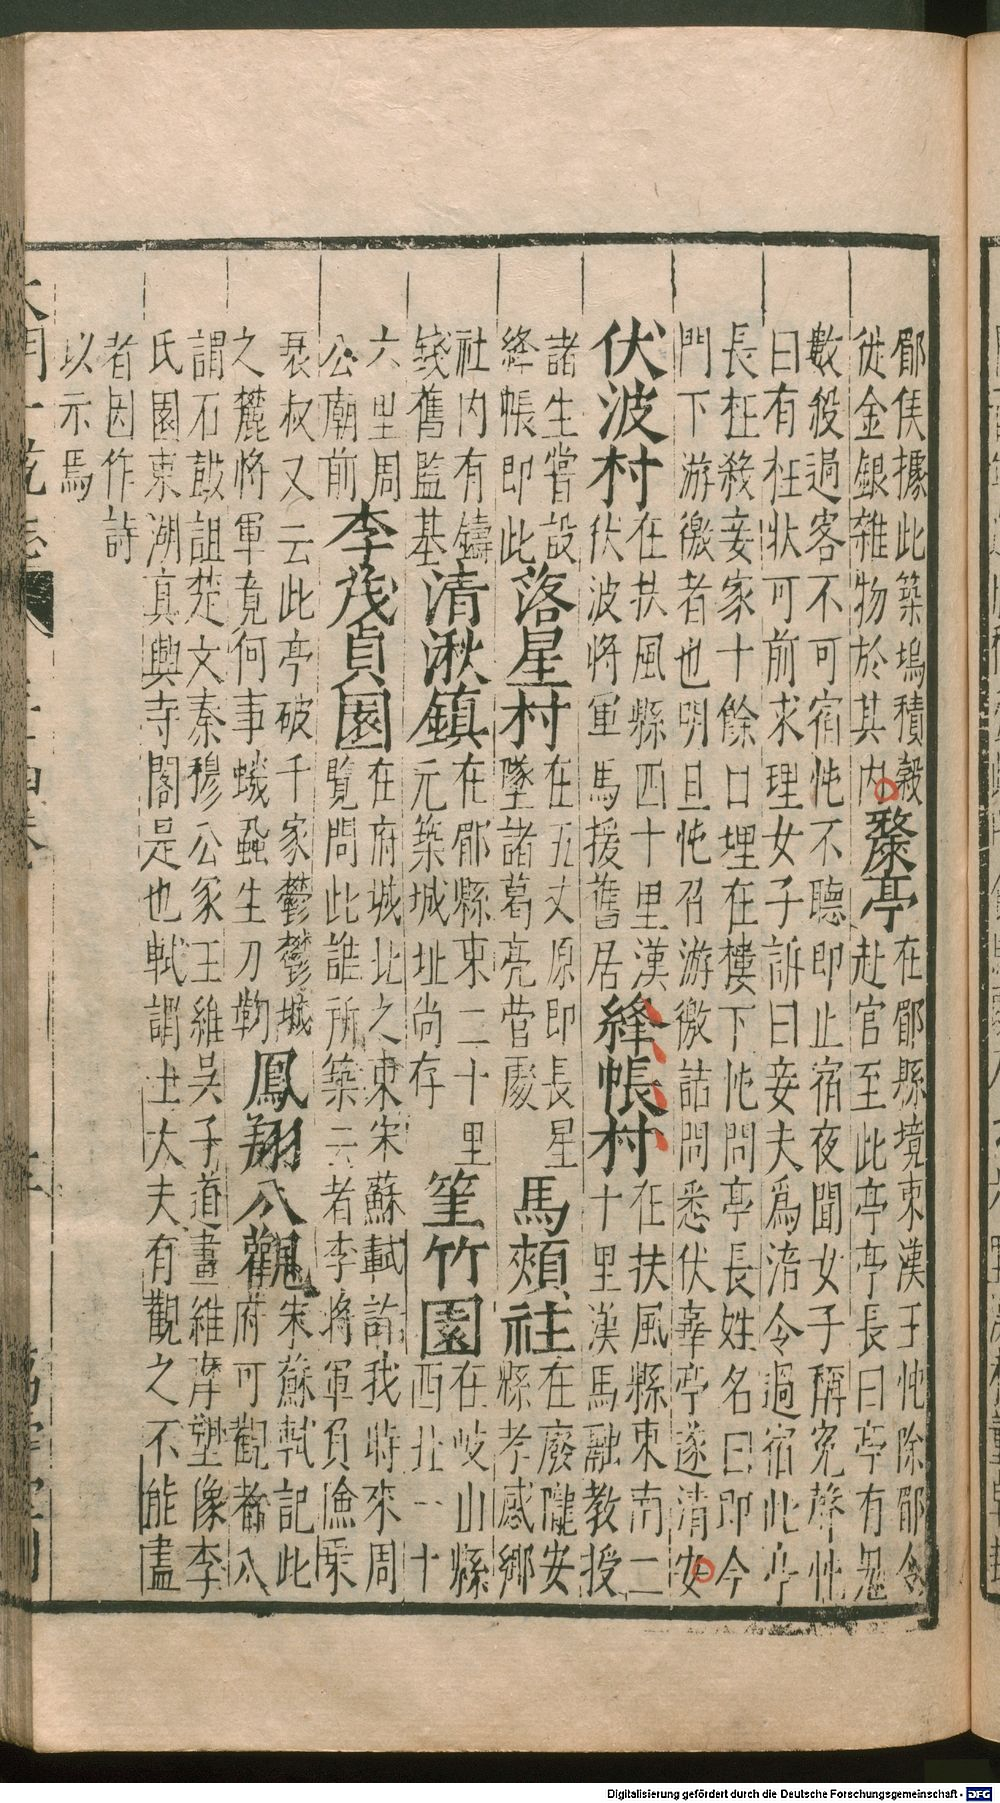 郿侯據此築塢積穀
徙金銀雜物於其內
漦亭
在郿縣境東漢王忳除郿令
赴官至此亭亭長曰亭有鬼
數殺過客不可宿忳不聽即止宿夜聞女子稱冤聲忳
曰有枉狀可前求理女子訴曰妾夫爲涪令過宿此亭
長枉殺妾家十餘口埋在樓下忳問亭長姓名曰即今
門下游徼者也明旦忳召游徼詰問悉伏辜亭遂清安
伏波村
在扶風縣西十里漢
伏波將軍馬援舊居
絳帳村
在扶風縣東南二
十里漢馬融教授
諸生嘗設
絳帳即此
落星村
在五丈原即長星
墜諸葛亮營處
馬頰社
在廢隴安
縣孝感鄉
社内有鑄
錢舊監基
清湫鎮
在郿縣東二十里
元築城址尚存
篁竹園
在岐山縣
西北一十
六里周
公廟前
李茂貞園
在府城北之東宋蘇軾詩我時來周
覽問此誰所築云者李將軍負險乘
衰叔又云此亭破千家鬱鬱城
之麓將軍竟何事蟣蝨生刀
鳳翔八觀
宋蘇軾記此
府可觀者八
謂石鼓詛楚文秦穆公冢王維吳子道畫維摩塑像李
氏園東湖真興寺閣是也軾謂士大夫有觀之不能盡
者因作詩
以示焉
Digitalisierung gefördert durch die Deutsche Forschungsgemeinschaft - DFG